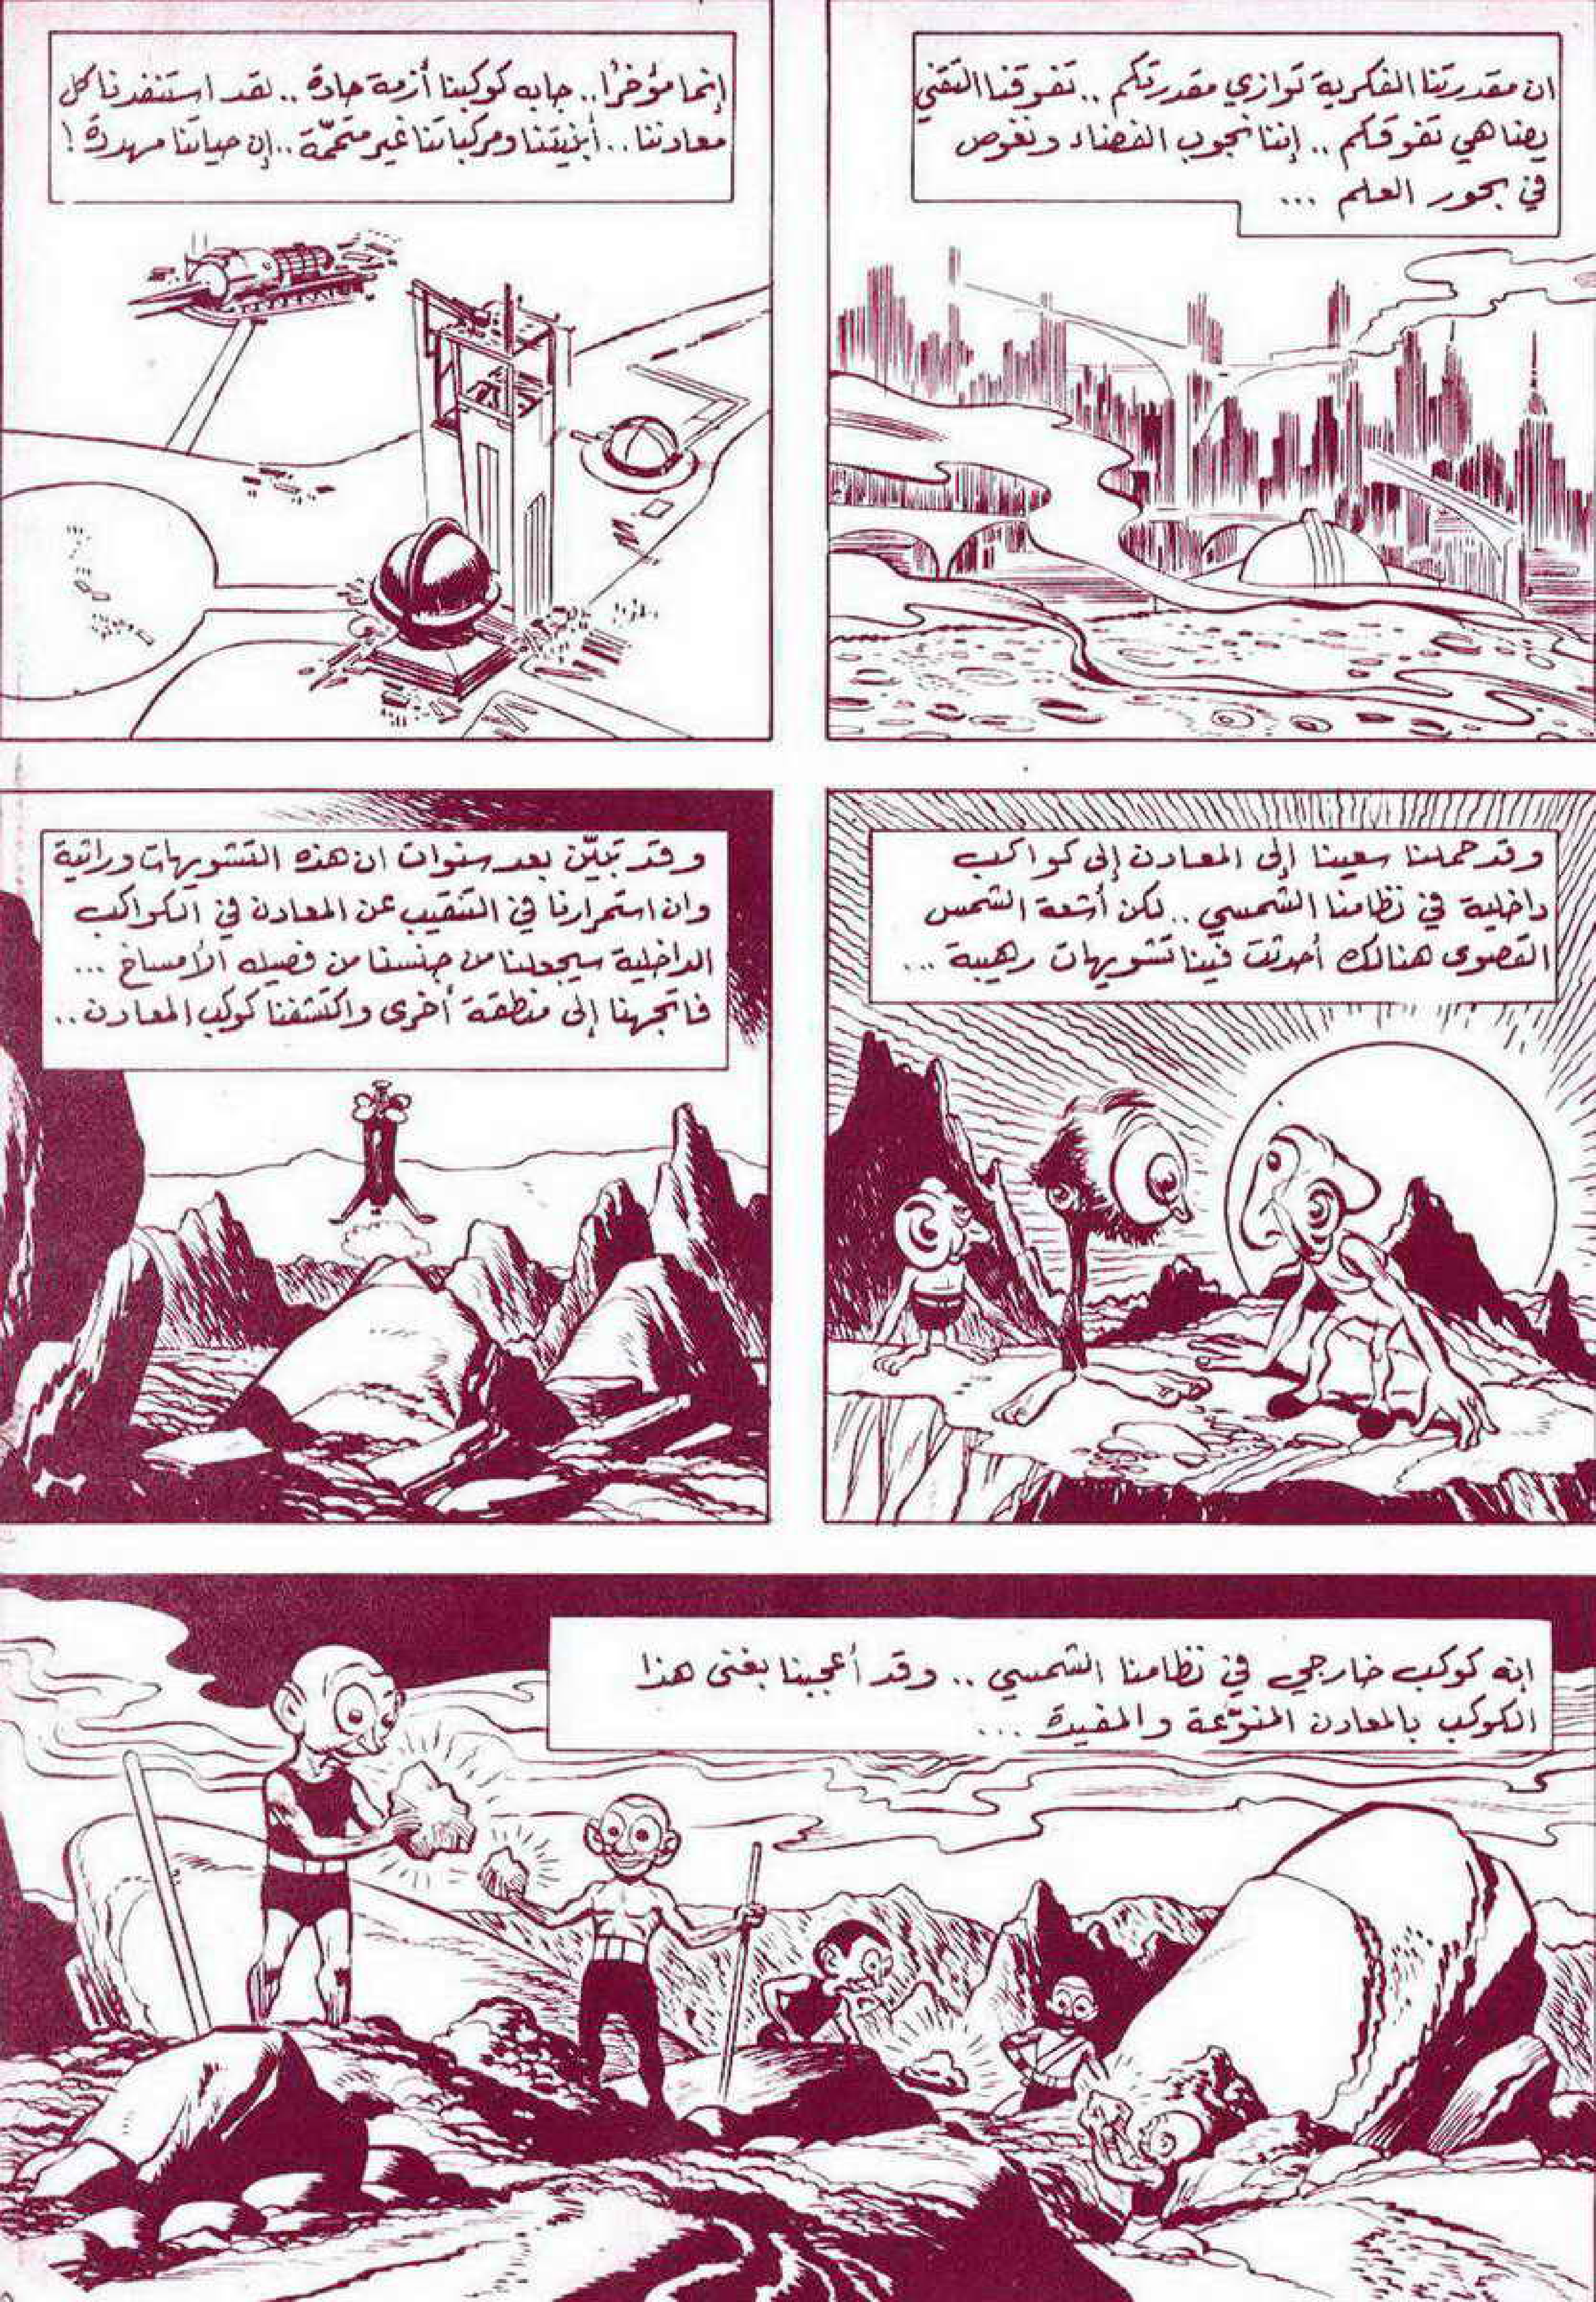 ان مقدرتنا الفكرية توازي مقدرتكم .. تفوقنا التقني
يضاهي تفوقكم .. إننا نجوب الفضاء ونغوص
في بحور العلم ...
إنما مؤخرًا.. جابه كوكبنا أزمة حادة .. لقد استنفدنا كل
معادننا .. أبنيتنا ومركباتنا غير متممّة .. إن حياتنا مهددة !
وقد حملنا سعينا إلى المعادن إلى كواكب
داخلية في نظامنا الشمسي .. لكن أشعة الشمس
القصوى هنالك أحدثت فينا تشويهات رهيبة ...
وقد تبيّن بعد سنوات ان هذه التشويهات وراثية
وان استمرارنا في التنقيب عن المعادن في الكواكب
الداخلية سيجعلنا من جنسنا من فصيله الأمساخ ...
فاتجهنا إلى منطقة أخرى واكتشفنا كوكب المعادن ..
إنه كوكب خارجي في نظامنا الشمسي .. وقد أعجبنا بغنى هذا
الكوكب بالمعادن المنوّعة والمفيدة ...